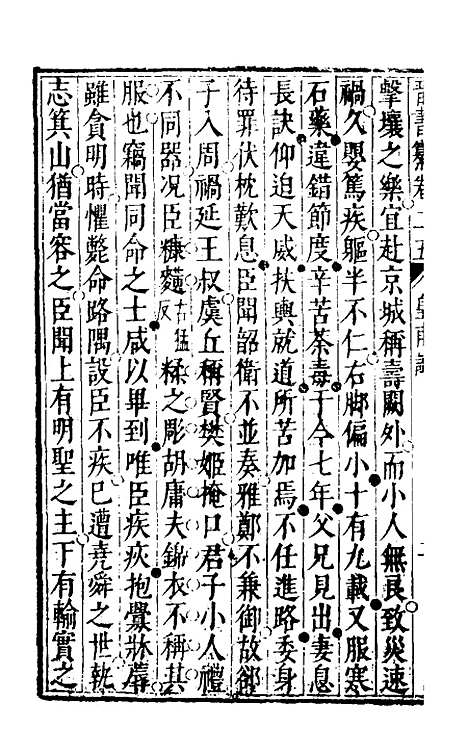 晉書纂卷二五　皇甫謐
擊壤之樂宜赴京城稱壽闕外而小人無良致災速
禍久嬰篤疾軀半不仁右脚偏小十有九載又服寒
石藥違錯節度辛苦荼毒于今七年父兄見出妻息
長訣仰迫天威扶輿就道所苦加焉不任進路委身
待罪伏枕歎息臣聞韶衛不並奏雅鄭不兼御故郤
子入周禍延王叔虞丘稱賢樊姬掩口君子小人禮
不同器况臣糠䵃古猛反糅之彫胡庸夫錦衣不稱其
服也竊聞同命之士咸以畢到唯臣疾疢抱釁牀蓐
雖貪明時懼斃命路隅設臣不疾已遭堯舜之世執
志箕山猶當容之臣聞上有明聖之主下有輸實之